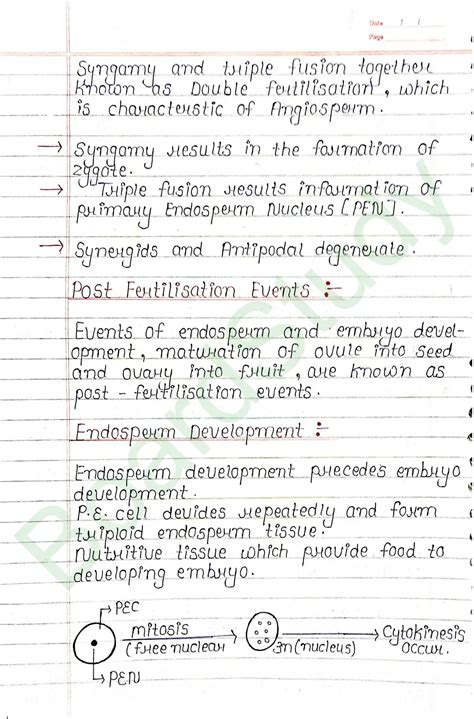 Date / /
Page
Syngamy and triple fusion together
known as Double fertilisation, which
is characterstic of Angiosperm.
→ Syngamy results in the formation of
zygote.
→ Triple fusion results information of
primary Endosperm Nucleus [PEN].
→ Synergids and Antipodal degenerate.
Post Fertilisation Events :-
Events of endosperm and embryo devel-
opment, maturation of ovule into seed
and ovary into fruit, are known as
post - fertilisation events.
Endosperm Development :-
Endosperm development precedes embryo
development.
P.E. cell devides repeatedly and form
triploid endosperm tissue.
Nutritive tissue which provide food to
developing embryo.
PEC
mitosis
(free nuclear
3n (nucleus)
Cytokinesis
occur.
PEN
BoardStudy